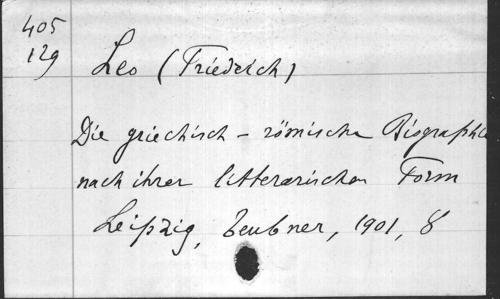 405
129
Leo (Friedrich)
Die griechisch - römische Biographie
nach ihrer litterarischen Form
Leipzig, Teubner, 1901, 8